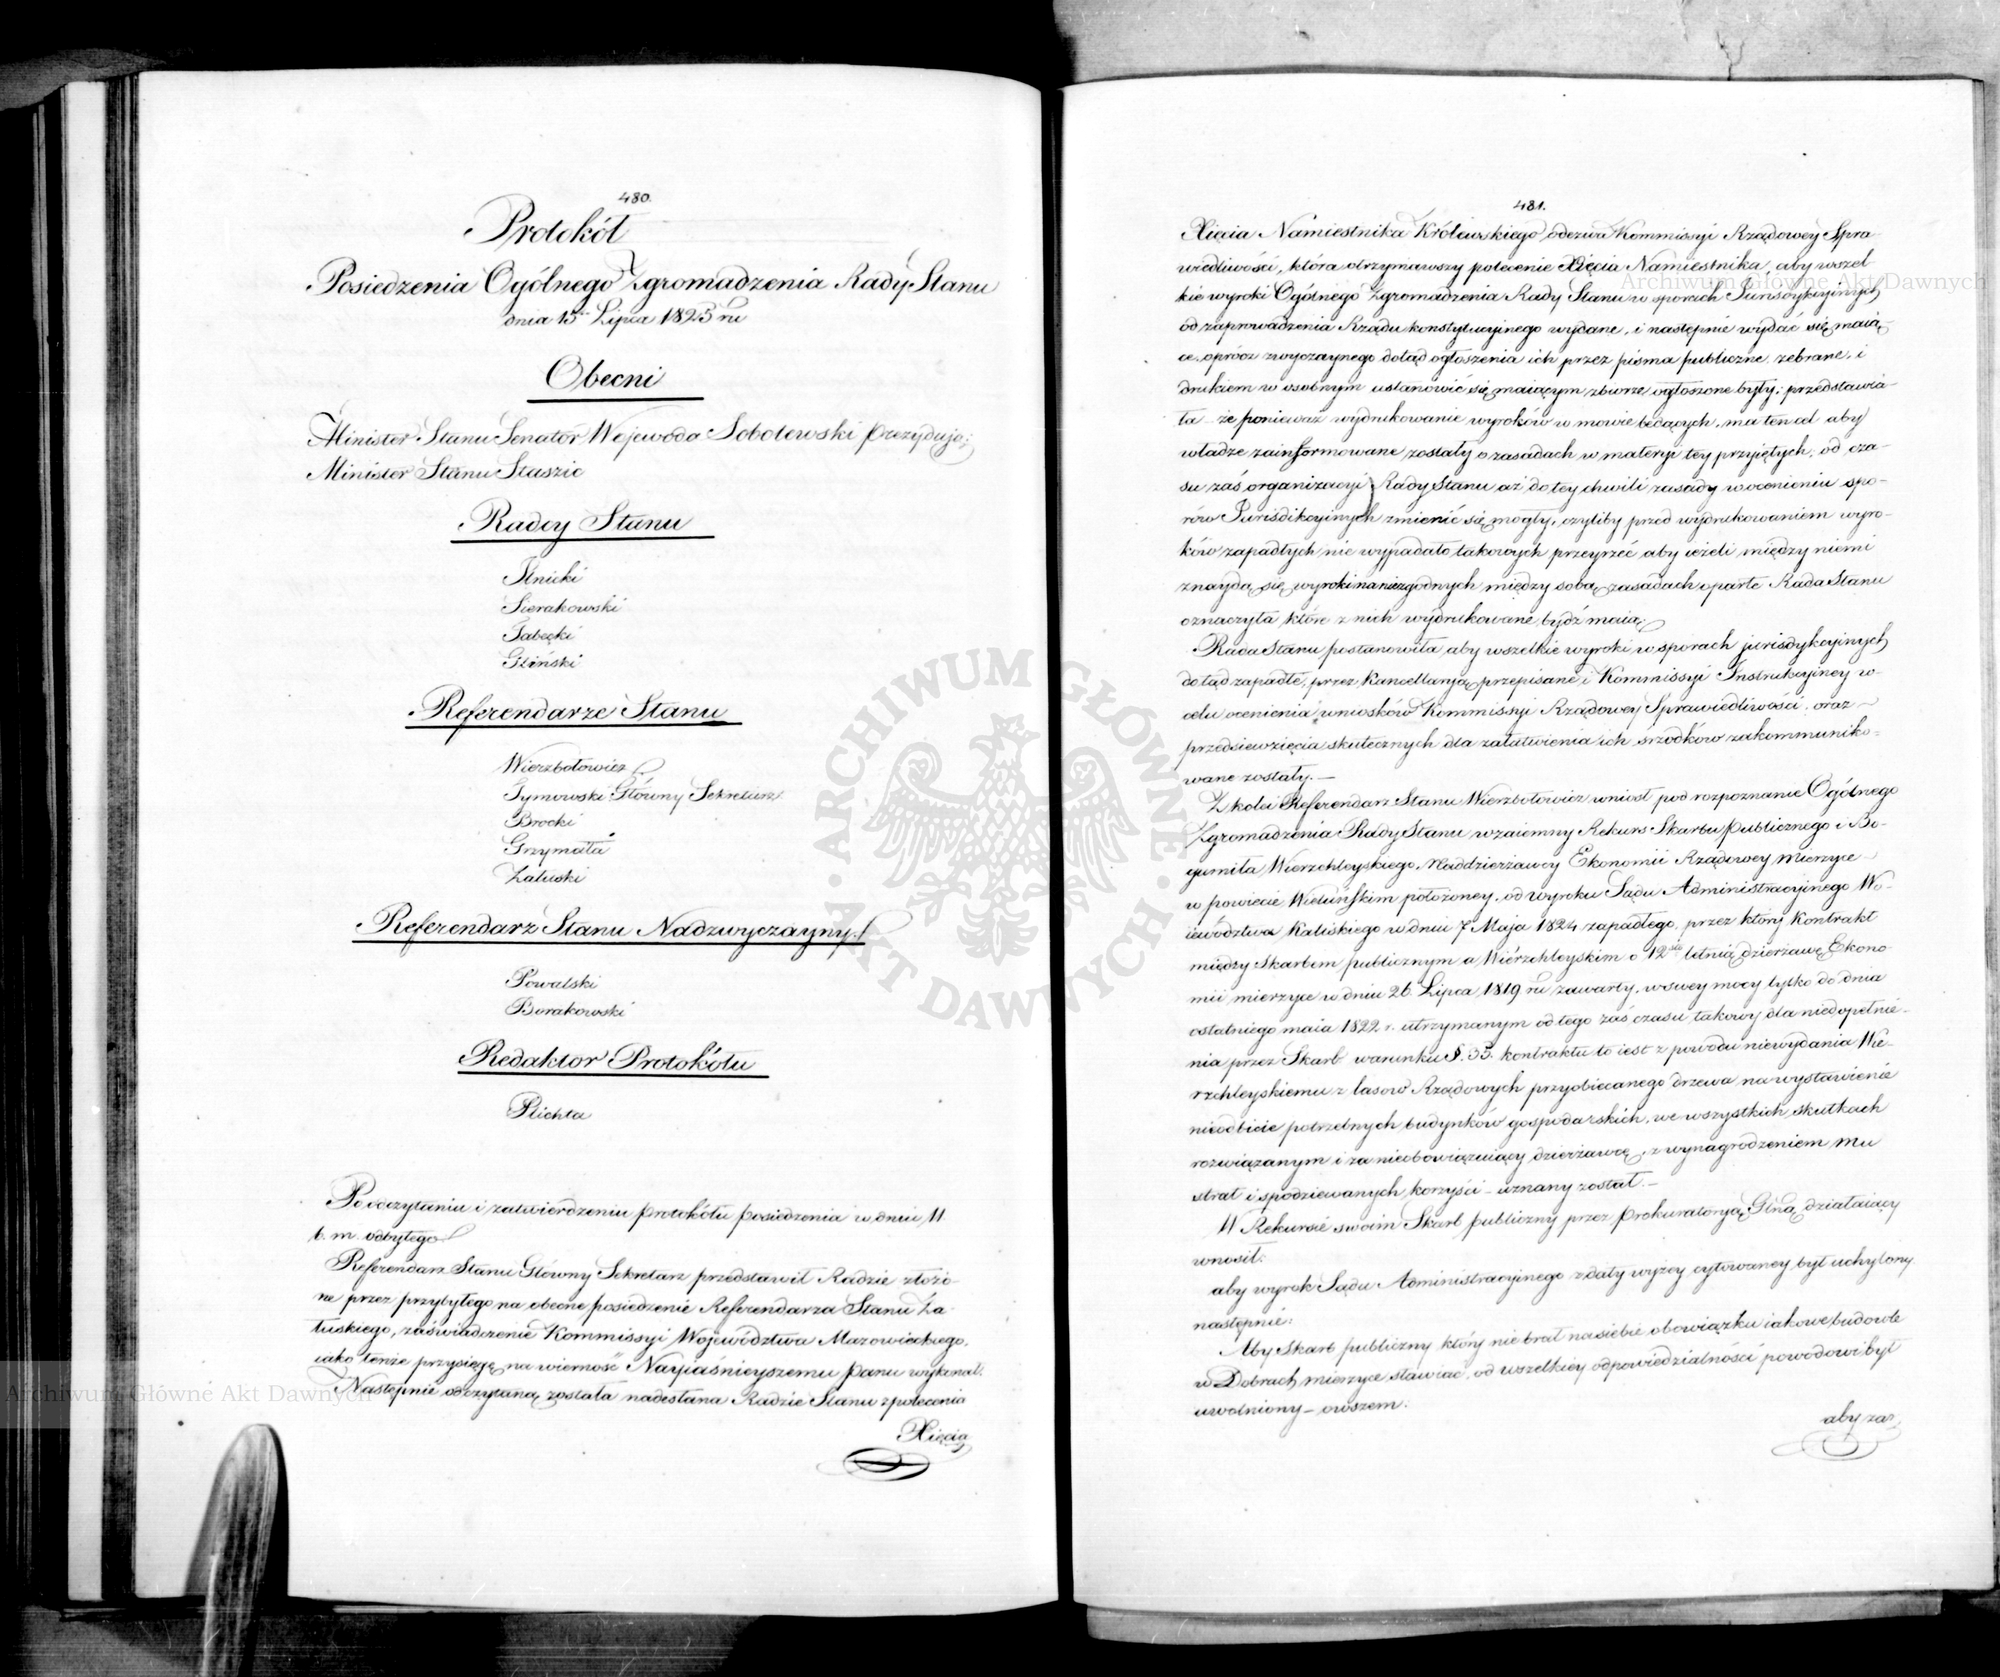 480.
Protokół
Posiedzenia Ogólnego Zgromadzenia Rady Stanu
dnia 15 Lipca 1825 ru
Obecni
Minister Stanu Senator Wojewoda Sobolewski prezyduje;
Minister Stanu Staszic
Radcy Stanu
Ilnicki
Sierakowski
Łabęcki
Gliński
Referendarze Stanu
Wierzbołowicz
Tymowski Główny Sekretarz
Brocki
Grzymała
Załuski
Referendarz Stanu Nadzwyczayny
Powalski
Borakowski
Redaktor Protokółu
Plichta
Po odczytaniu i zatwierdzeniu protokółu posiedzenia w dniu 11
b. m. odbytego
Referendarz Stanu Główny Sekretarz przedstawił Radzie złożo-
ne przez przybyłego na obecne posiedzenie Referendarza Stanu Za-
łuskiego, zaświadczenie Kommissyi Województwa Mazowieckiego,
iako tenże przysięgę na wierność Nayiaśnieyszemu Panu wykonał.
Następnie odczytaną została nadesłana Radzie Stanu z polecenia
Xięcia
481.
Xięcia Namiestnika Królewskiego, odezwa Kommissyi Rządowey Spra-
wiedliwości, która otrzymawszy polecenie Xięcia Namiestnika, aby wszel-
kie wyroki Ogólnego Zgromadzenia Rady Stanu w sporach Jurisdykcyinych
od zaprowadzenia Rządu konstytucyinego wydane, i następnie wydać się maią-
ce, oprócz zwyczaynego dotąd ogłoszenia ich przez pisma publiczne, zebrane, i
drukiem w osobnym ustanowić się maiącym zbiorze ogłoszone były; przedstawia-
ła że ponieważ wydrukowanie wyroków w mowie będących, ma ten cel aby
władze zainformowane zostały o zasadach w materyi tey przyiętych, od cza-
su zaś organizacyi Rady Stanu aż do tey chwili zasady w ocenieniu spo-
rów Jurisdikcyinych zmienić się mogły, czyliby przed wydrukowaniem wyro-
ków zapadłych nie wypadało takowych przeyrzeć aby ieżeli między niemi
znaydą się wyroki na niezgodnych między sobą zasadach oparte Rada Stanu
oznaczyła które z nich wydrukowane bydź maią;
Rada Stanu postanowiła, aby wszelkie wyroki w sporach jurisdykcyinych
dotąd zapadłe, przez Kancellaryą przepisane i Kommissyi Instrukcyiney w
celu ocenienia wniosków Kommissyi Rządowey Sprawiedliwości, oraz
przedsięwzięcia skutecznych dla załatwienia ich środków zakommuniko-
wane zostały. —
Z kolei Referendarz Stanu Wierzbołowicz wniosł pod rozpoznanie Ogólnego
Zgromadzenia Rady Stanu wzaiemny Rekurs Skarbu publicznego i Bo-
gumiła Wierzchleyskiego, Naddzierżawcy Ekonomii Rządowey Mierzyce
w powiecie Wieluńskim położoney, od wyroku Sądu Administracyinego Wo-
iewództwa Kaliskiego w dniu 7 Maja 1824 zapadłego, przez który kontrakt
między Skarbem publicznym a Wierzchleyskim o 12 letnią dzierżawę Ekono-
mii mierzyce w dniu 26 Lipca 1819 ru zawarty, w swey mocy tylko do dnia
ostatniego maia 1822 r. utrzymanym od tego zaś czasu takowy dla niedopełnie-
nia przez Skarb warunku §. 35. kontraktu to iest z powodu niewydania Wie-
rzchleyskiemu z lasow Rządowych przyobiecanego drzewa na wystawienie
nieodbicie potrzebnych budynków gospodarskich, we wszystkich skutkach
rozwiązanym i za nieobowiązuiący dzierżawcę, z wynagrodzeniem mu
strat i spodziewanych korzyści — uznany został. —
W Rekursie swoim Skarb publiczny przez Prokuratoryą Glną działaiący
wnosił:
aby wyrok Sądu Administracyinego z daty wyżey cytowaney był uchylony
następnie:
Aby Skarb publiczny który nie brał na siebie obowiązku iakowe budowle
w Dobrach mierzyce stawiać, od wszelkiey odpowiedzialności powodowi był
uwolniony — owszem:
aby zas
Archiwum Główne Akt Dawnych
Archiwum Główne Akt Dawnych
ARCHIWUM GŁÓWNE AKT DAWNYCH